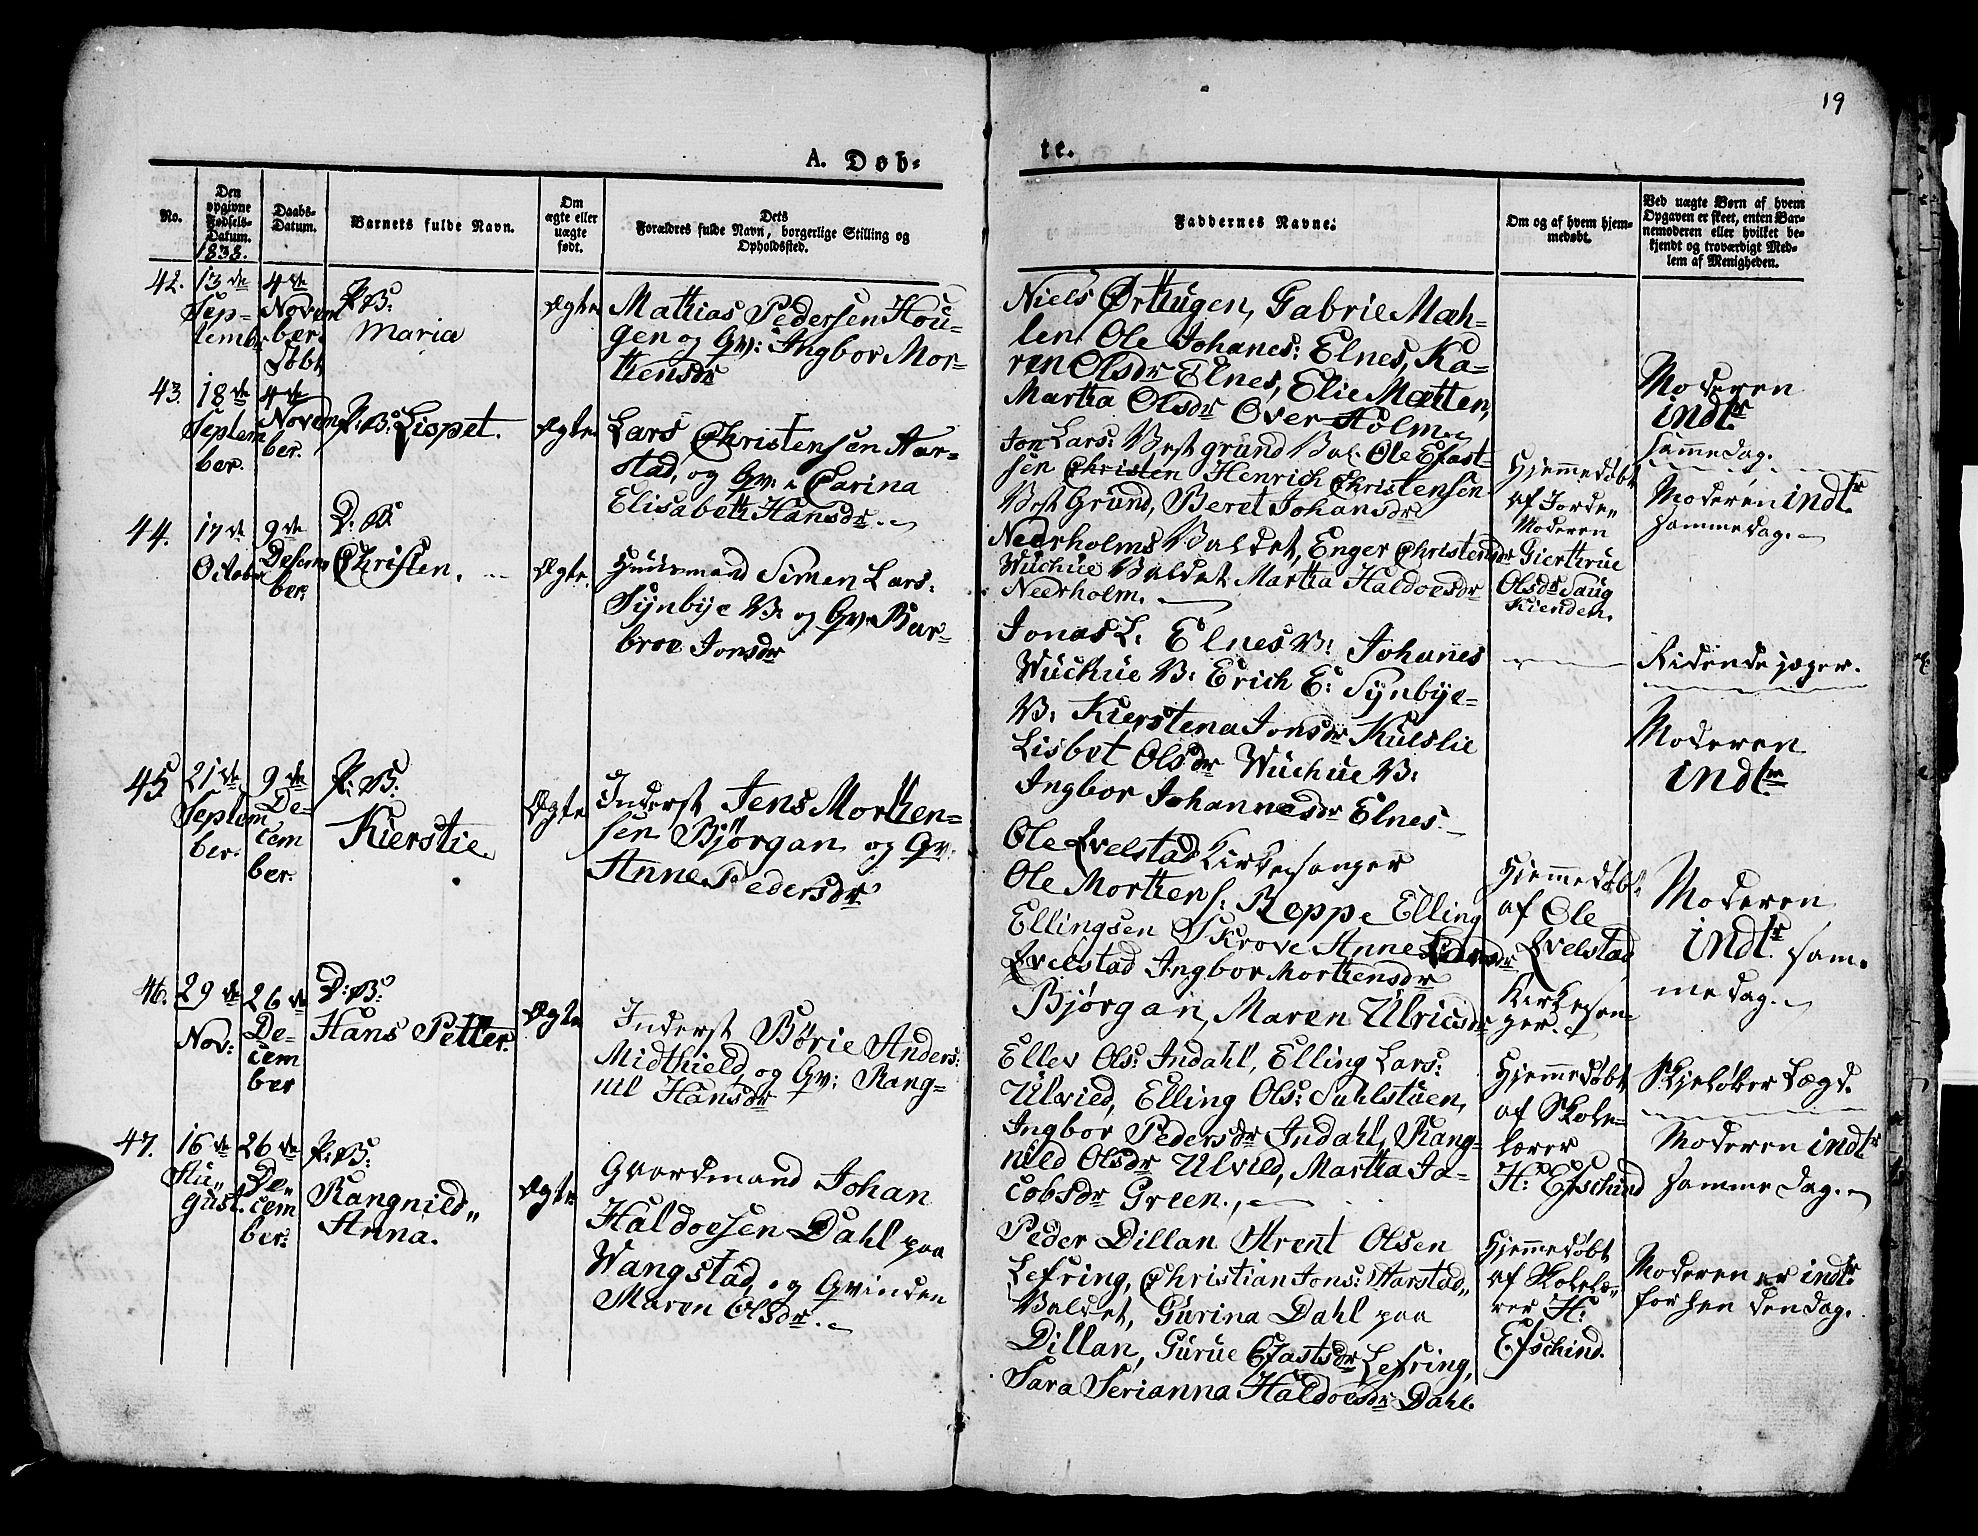 19
A. Døb-
te.
No.
Den
opgivne
Fødsels-
Datum.
1838.
Daabs-
Datum.
Barnets fulde Navn.
Om
ægte eller
uægte
født.
Dets
Forældres fulde Navn, borgerlige Stilling og
Opholdssted.
Faddernes Navne.
Om og af hvem hjem-
medøbt.
Ved uægte Børn af hvem
Opgaven er skeet, enten Bar-
nemoderen eller hvilket be-
kjendt og troværdigt Med-
lem af Menigheden.
42.
13de
Sep-
tembr
4de
Novem
ber
Døbt
P:B:
Maria
Ægte
Mathias Pedersen Hou-
gen og Gv: Ingbor Mor-
thensdr
Niels Ørthugen, Gabriel Mæh-
len Ole Johanes: Elnes, Ka-
ren Olsdr Elnes, Elie Mætten,
Martha Olsdr Over-Holm
Moderen
indtr
sammedag.
43.
18de
Septem
ber.
4de
Novem
ber.
P:B: Lispet.
Ægte
Lars Christensen Aar-
stad, og Gv: Carina
Elisabeth Hansdr.
Jon Lars: Vestgrund Val: Ole Efast-
sen Christen Henrich Christensen
Vest Grund, Beret Johansdr
Neerholms Valdet, Enger Christensdr
Wuchue Valdet Martha Haldoesdr
Neerholm.
Hjemmedøbt
af Jorde-
Moderen
Gierthrue
Olsdr Saug
Kienden.
Moderen indtr
sammedag.
44.
17de
October
9de
Desem
ber.
D:B:
Christen.
Ægte.
Huusmand Simen Lars:
Synbye V: og Gv: Bar-
broe Jonsdr
Jonas L: Elnes V: Johanes
Wuchue V: Erich E: Synbye-
V: Kierstena Jonsdr Kulslie
Lisbet Olsdr Wuchue V:
Ingbor Johannesdr Elnes.
Ridende jæger.
Moderen
indtr
45
21de
Septem
ber.
9de
De-
cem
ber.
P:B:
Kierstie.
Ægte
Inderst Jens Morthen-
sen Bjørgan og Gv:
Anne Pedersdr
Ole Qvelstad Kirkesanger
Ole Morthens: Reppe Elling
Ellingsen Skrove Anne Larsdr
Qvelstad Ingbor Morthensdr
Bjørgan, Maren Ulricsdr
Hjemmedøbt
af Ole
Qvelstad
Kirkesan-
ger.
Moderen
indtr sam-
medag.
46.
29de
Nov:
26de
De-
cem
ber
D:B:
Hans Petter.
Ægte
Inderst Børie Anders:
Midthield, og Gv: Rang-
nil Hansdr
Ellev Ols: Indahl, Elling Lars:
Ulvild, Elling Ols: Sahlstuen,
Ingbor Pedersdr Indahl, Rang-
nild Olsdr Ulvild, Martha Ja-
cobsdr Green.
Hjemmedøbt
af Skole-
lærer
H: Efschind
Skjeløber Lægd.
Moderen indtr
samme dag.
47.
16de
Au-
gust.
26de
De-
cem
ber.
P:B:
Rangnild
Anna.
Ægte
Gaardmand Johan
Haldoesen Dahl paa
Wangstad, og Qvinden
Maren Olsdr.
Peder Dillan Arent Olsen
Lefring, Christian Jons: Harstad
Valdet, Gurina Dahl paa
Dillan, Gurue Efastsdr Lefring,
Sara Serianna Haldoesdr Dahl.
Hjemmedøbt
af Skolelæ-
rer H:
Efschind.
Moderen er indtr
for hen den dag.